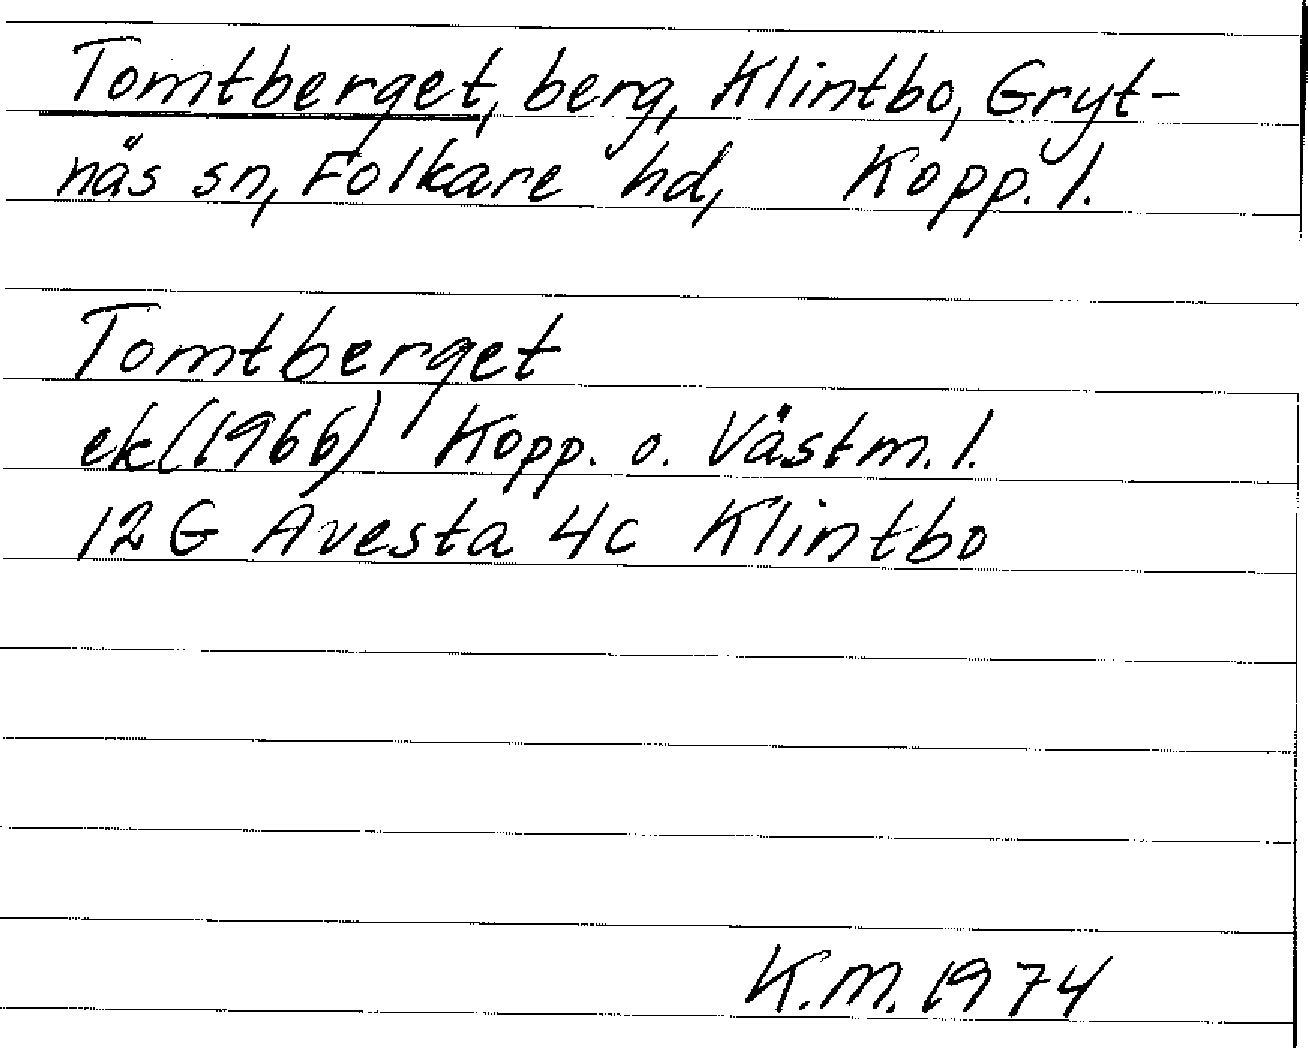 Tomtberget, berg, Klintbo, Gryt-
näs sn, Folkare hd, Kopp. l.
Tomtberget
ek (1966) Kopp. o. Västm. l.
12 G Avesta 4c Klintbo
K.M. 1974